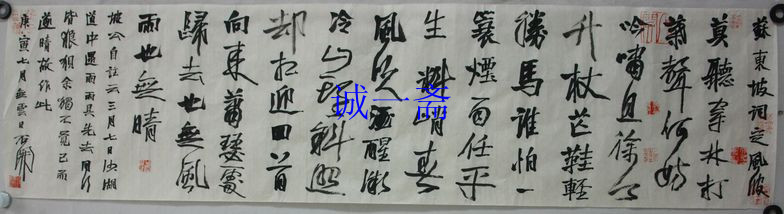 蘇東坡词定風波
莫聽穿林打
葉聲何妨
吟嘯且徐行
竹杖芒鞋輕
勝馬誰怕一
蓑煙雨任平
生料峭春
風吹酒醒微
冷山頭斜照
却相迎回首
向來蕭瑟處
歸去也無風
雨也無晴
坡公自註云三月七日沙湖
道中遇雨雨具先去同行
皆狼狽余獨不覺已而
遂晴故作此
庚寅七月
诚一斋